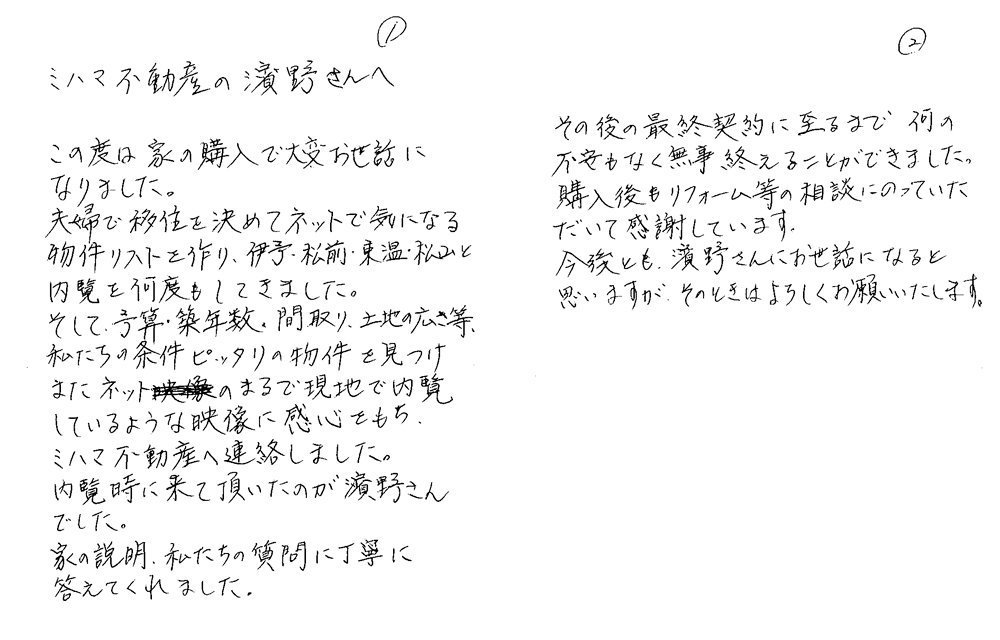 ①
ミハマ不動産の濱野さんへ
この度は家の購入で大変お世話に
なりました。
夫婦で移住を決めてネットで気になる
物件リストを作り、伊予・松前・東温・松山と
内覧を何度もしてきました。
そして、予算・築年数、間取り、土地の広さ等、
私たちの条件ピッタリの物件を見つけ
またネットのまるで現地で内覧
しているような映像に感心をもち、
ミハマ不動産へ連絡しました。
内覧時に来て頂いたのが濱野さん
でした。
家の説明、私たちの質問に丁寧に
答えてくれました。
②
その後の最終契約に至るまで何の
不安もなく無事終えることができました。
購入後もリフォーム等の相談にのっていた
だいて感謝しています。
今後とも、濱野さんにお世話になると
思いますが、そのときはよろしくお願いいたします。